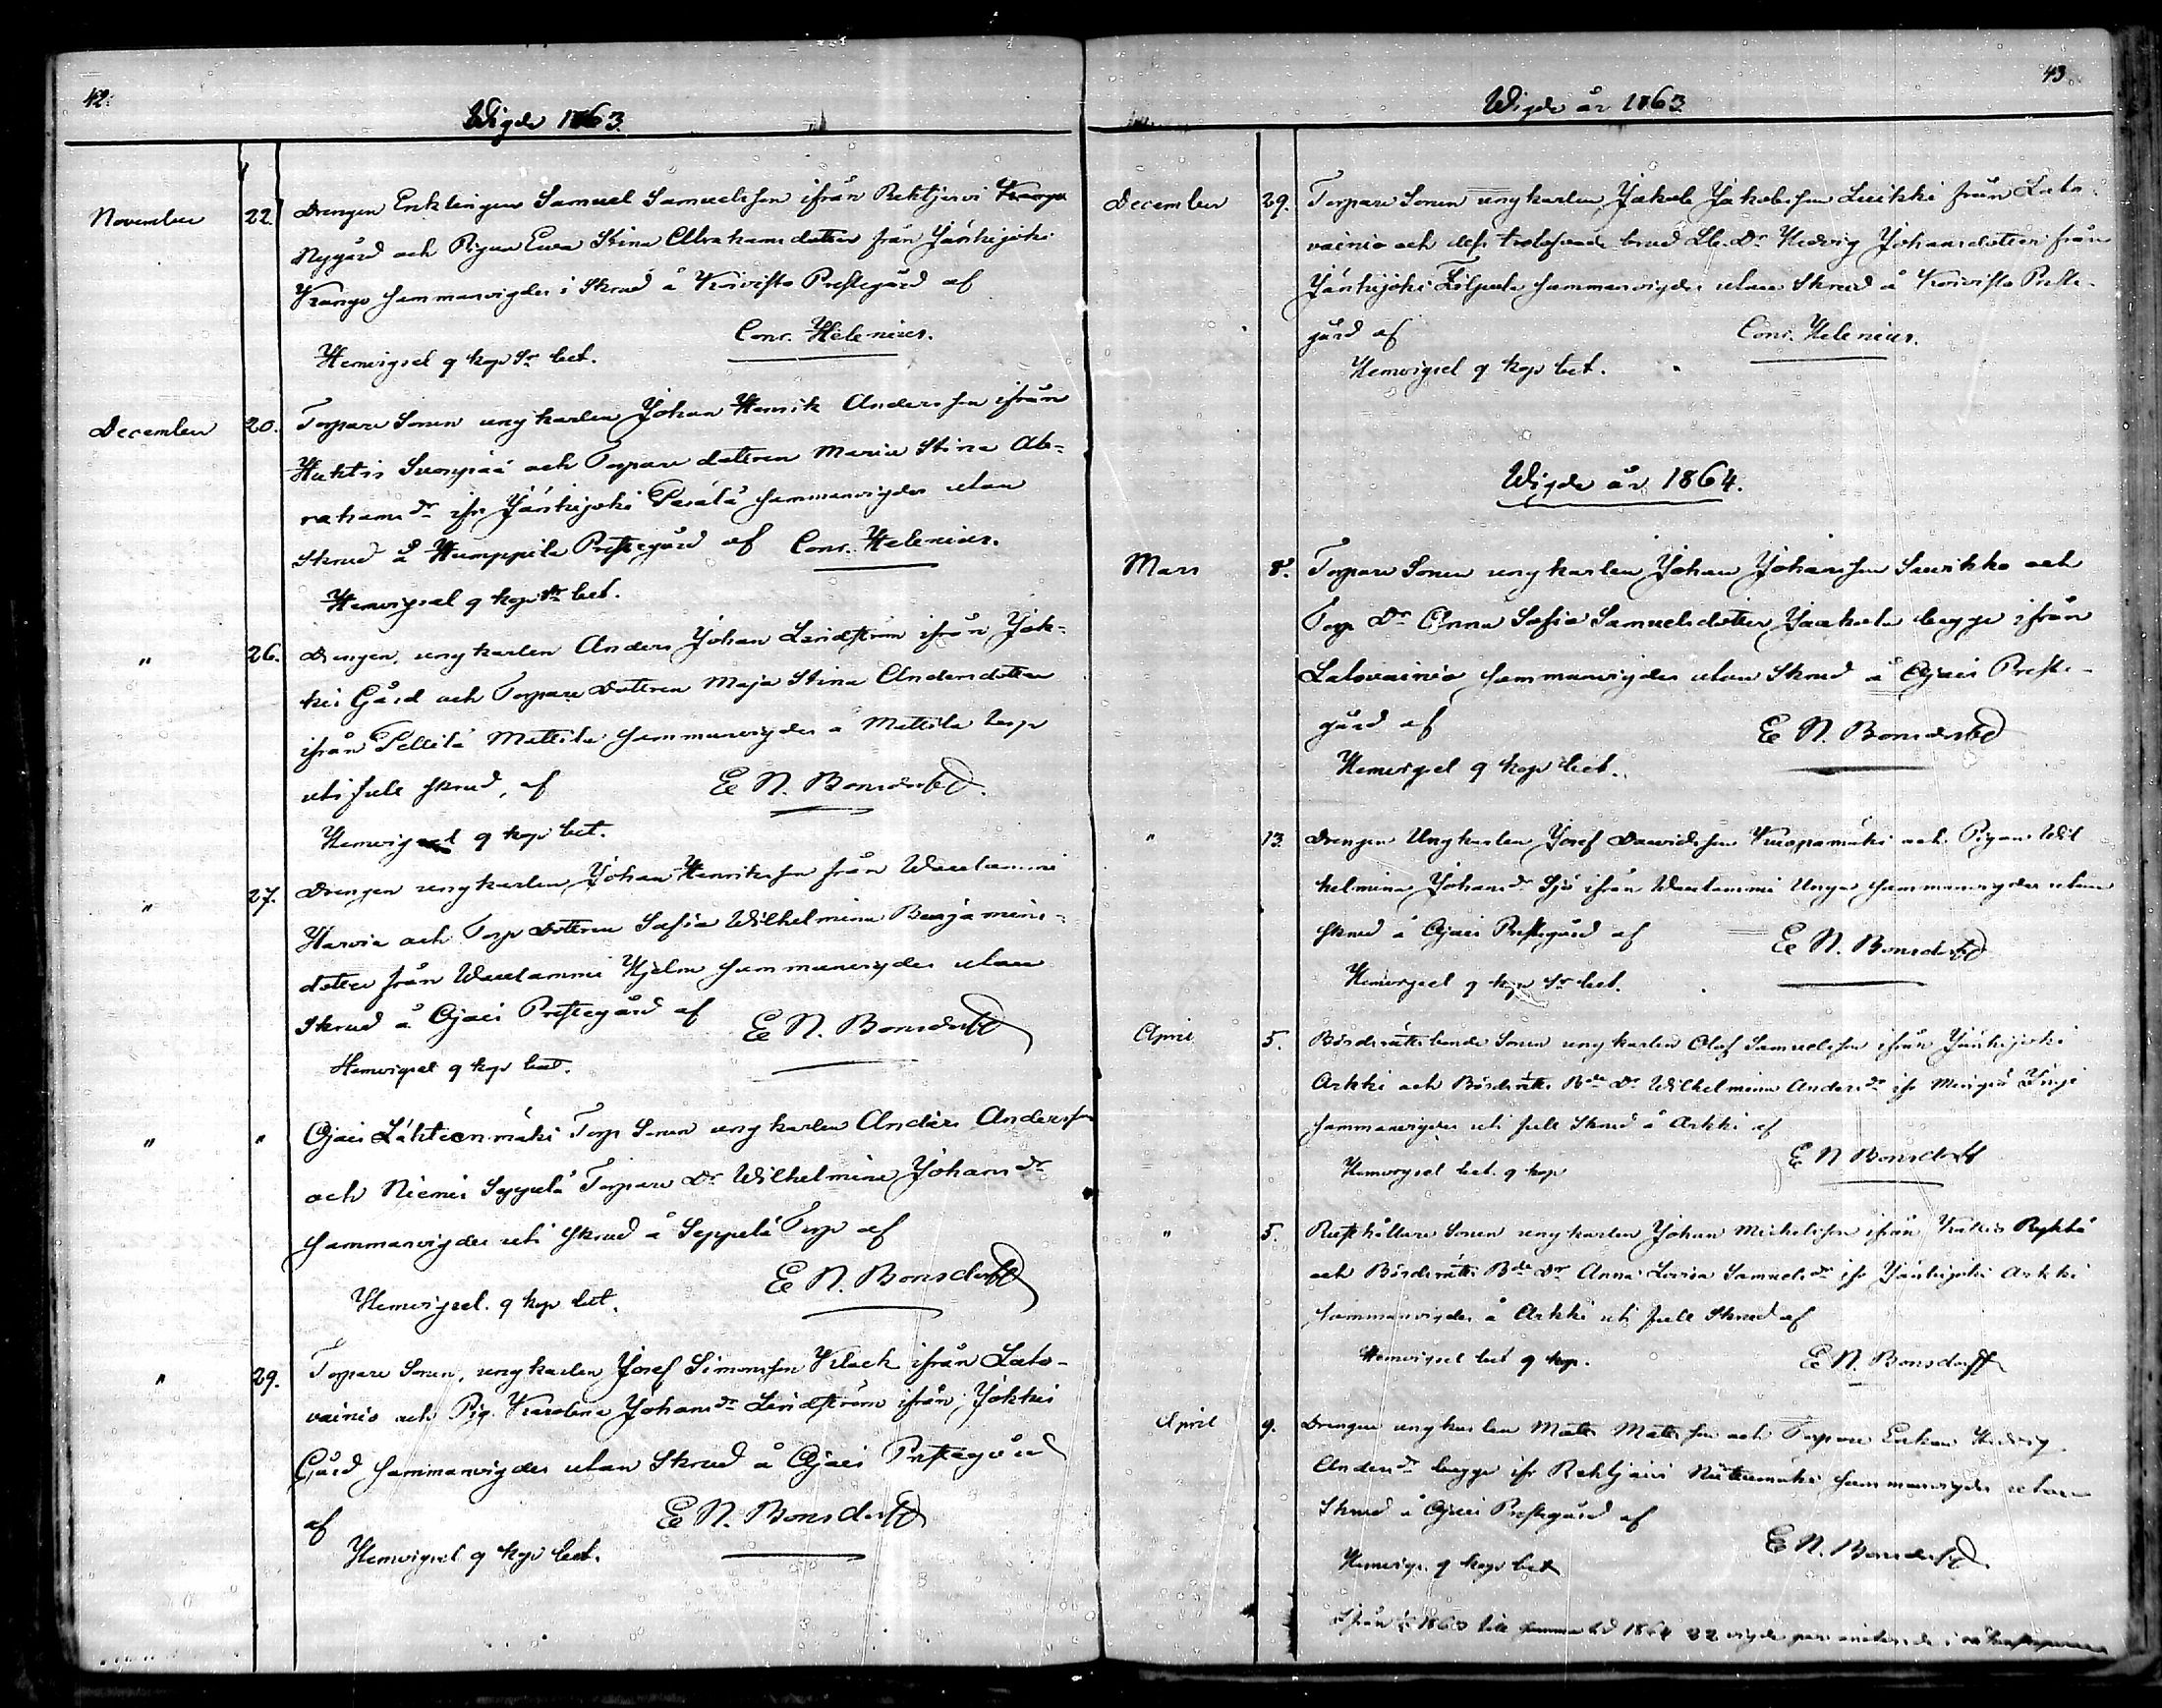 42.
Wigde 1863.
November 22. Drengen Enklingen Samuel Samuelsson ifrån Rehtijervi
Nygård och Pigan Eva Stina Abrahamsdotter från Jänhijoki
Krango sammanvigdes i Skrud å Koivisto Prestegård af
Conr. Helenius.
Hemvigsel q kop Sr bet.
December 20. Torpare Sonen ungkarlen Johan Henrik Andersson ifrån
Huhtis Suonpää och Torpare dottren Maria Stina Ab-
rahamsdr ifr Jänhijoki Pärälä sammanvigdes utan
Skrud å Humppila Prestegård af Conr. Helenius.
Hemvigsel q kop Sr bet.
" 26. Drengen, ungkarlen Anders Johan Lindström ifrån Jok-
kis Gård och Torpare Dottren Maja Stina Andersdotter
ifrån Pellilä Mattila sammanvigdes å Mattila torp
uti full skrud, af E N. Bonsdorff.
Hemvigsel q kop bet.
" 27. Drengen ungkarlen Johan Henriksson från Waulammi
Harvia och Torp Dottren Sofia Wilhelmina Benjamins-
dotter från Waulammi Hjelm sammanvigdes utan
Skrud å Ojais Prestegård af E N. Bonsdorff
Hemvigsel q kop bet.
" " Ojais Lähteenmäki Torp Sonen ungkarlen Anders Andersson
och Niemis Seppälä Torpare Dr Wilhelmina Johansdr
sammanvigdes uti skrud å Seppälä Torp af
E N. Bonsdorff
Hemvigsel. q kop bet.
" 29. Torpare Sonen, ungkarlen Josef Simonsson Klack ifrån Lato-
vainio och Pig. Karolina Johansdr Lindström ifrån Jokkis
Gård sammanvigdes utan Skrud å Ojais Prestegård
af E N. Bonsdorff
Hemvigsel q kop bet.
43
Wigde år 1863
December 29. Torpare Sonen ungkarlen Jakob Jakobsson Luikki från Lato-
vainio och dess trolofvade brud Dr Hedvig Johansdotter från
Jänhijoki Filpula sammanvigdes utan Skrud å Koivisto Preste-
gård af Conr. Helenius.
Hemvigsel q kop bet.
Wigde år 1864.
Mars 8. Torpare Sonen ungkarlen Johan Johansson Saurikko och
Torp Dr Anna Sofia Samuelsdotter Jaakola begge ifrån
Latovainio sammanvigdes utan Skrud å Ojais Preste-
gård af E N. Bonsdorff
Hemvigsel q kop bet.
" 13. Drengen Ungkarlen Josef Davidsson Kuoppamäki och Pigan Wil
helmina Johansdr Sjö ifrån Waulammi Unga sammanvigdes utan
skrud å Ojais Prestegård af E N. Bonsdorff
Hemvigsel q kop Sr bet.
April 5. Bördsrättsbonde Sonen ungkarlen Olof Samuelsson ifrån Jänhijoki
Arkki och Bördsrätts Bde Dr Wilhelmina Andersdr ifr
sammanvigdes uti full Skrud å Arkki af
E N Bonsdorff
Hemvigsel bet. q kop
" 5. Rusthållare Sonen ungkarlen Johan Michelsson ifrån Kallio
och Bördsrätts Bde Dr Anna Lovisa Samuelsdr ifr Jänhijoki Arkki
sammanvigdes å Arkki uti full Skrud af
Hemvigsel bet q kop. E N. Bonsdorff
April 9. Drengen ungkarlen Matts Mattsson och Torpare Enkan Hedvig
Andersdr begge ifr Rehtijärvi sammanvigdes utan
Skrud å Ojais Prestegård af
E N. Bonsdorff.
Hemvigs. q kop bet
ifrån 1863 till samma tid 1864 32 vigda par